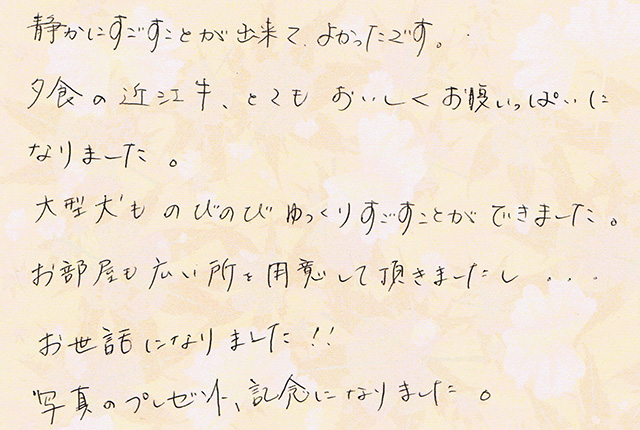 静かにすごすことが出来て、よかったです。
夕食の近江牛、とても おいしくお腹いっぱいに
なりました。
大型犬も のびのび ゆっくりすごすことが できました。
お部屋も広い所を用意して頂きましたし...
お世話になりました!!
写真のプレゼント、記念になりました。